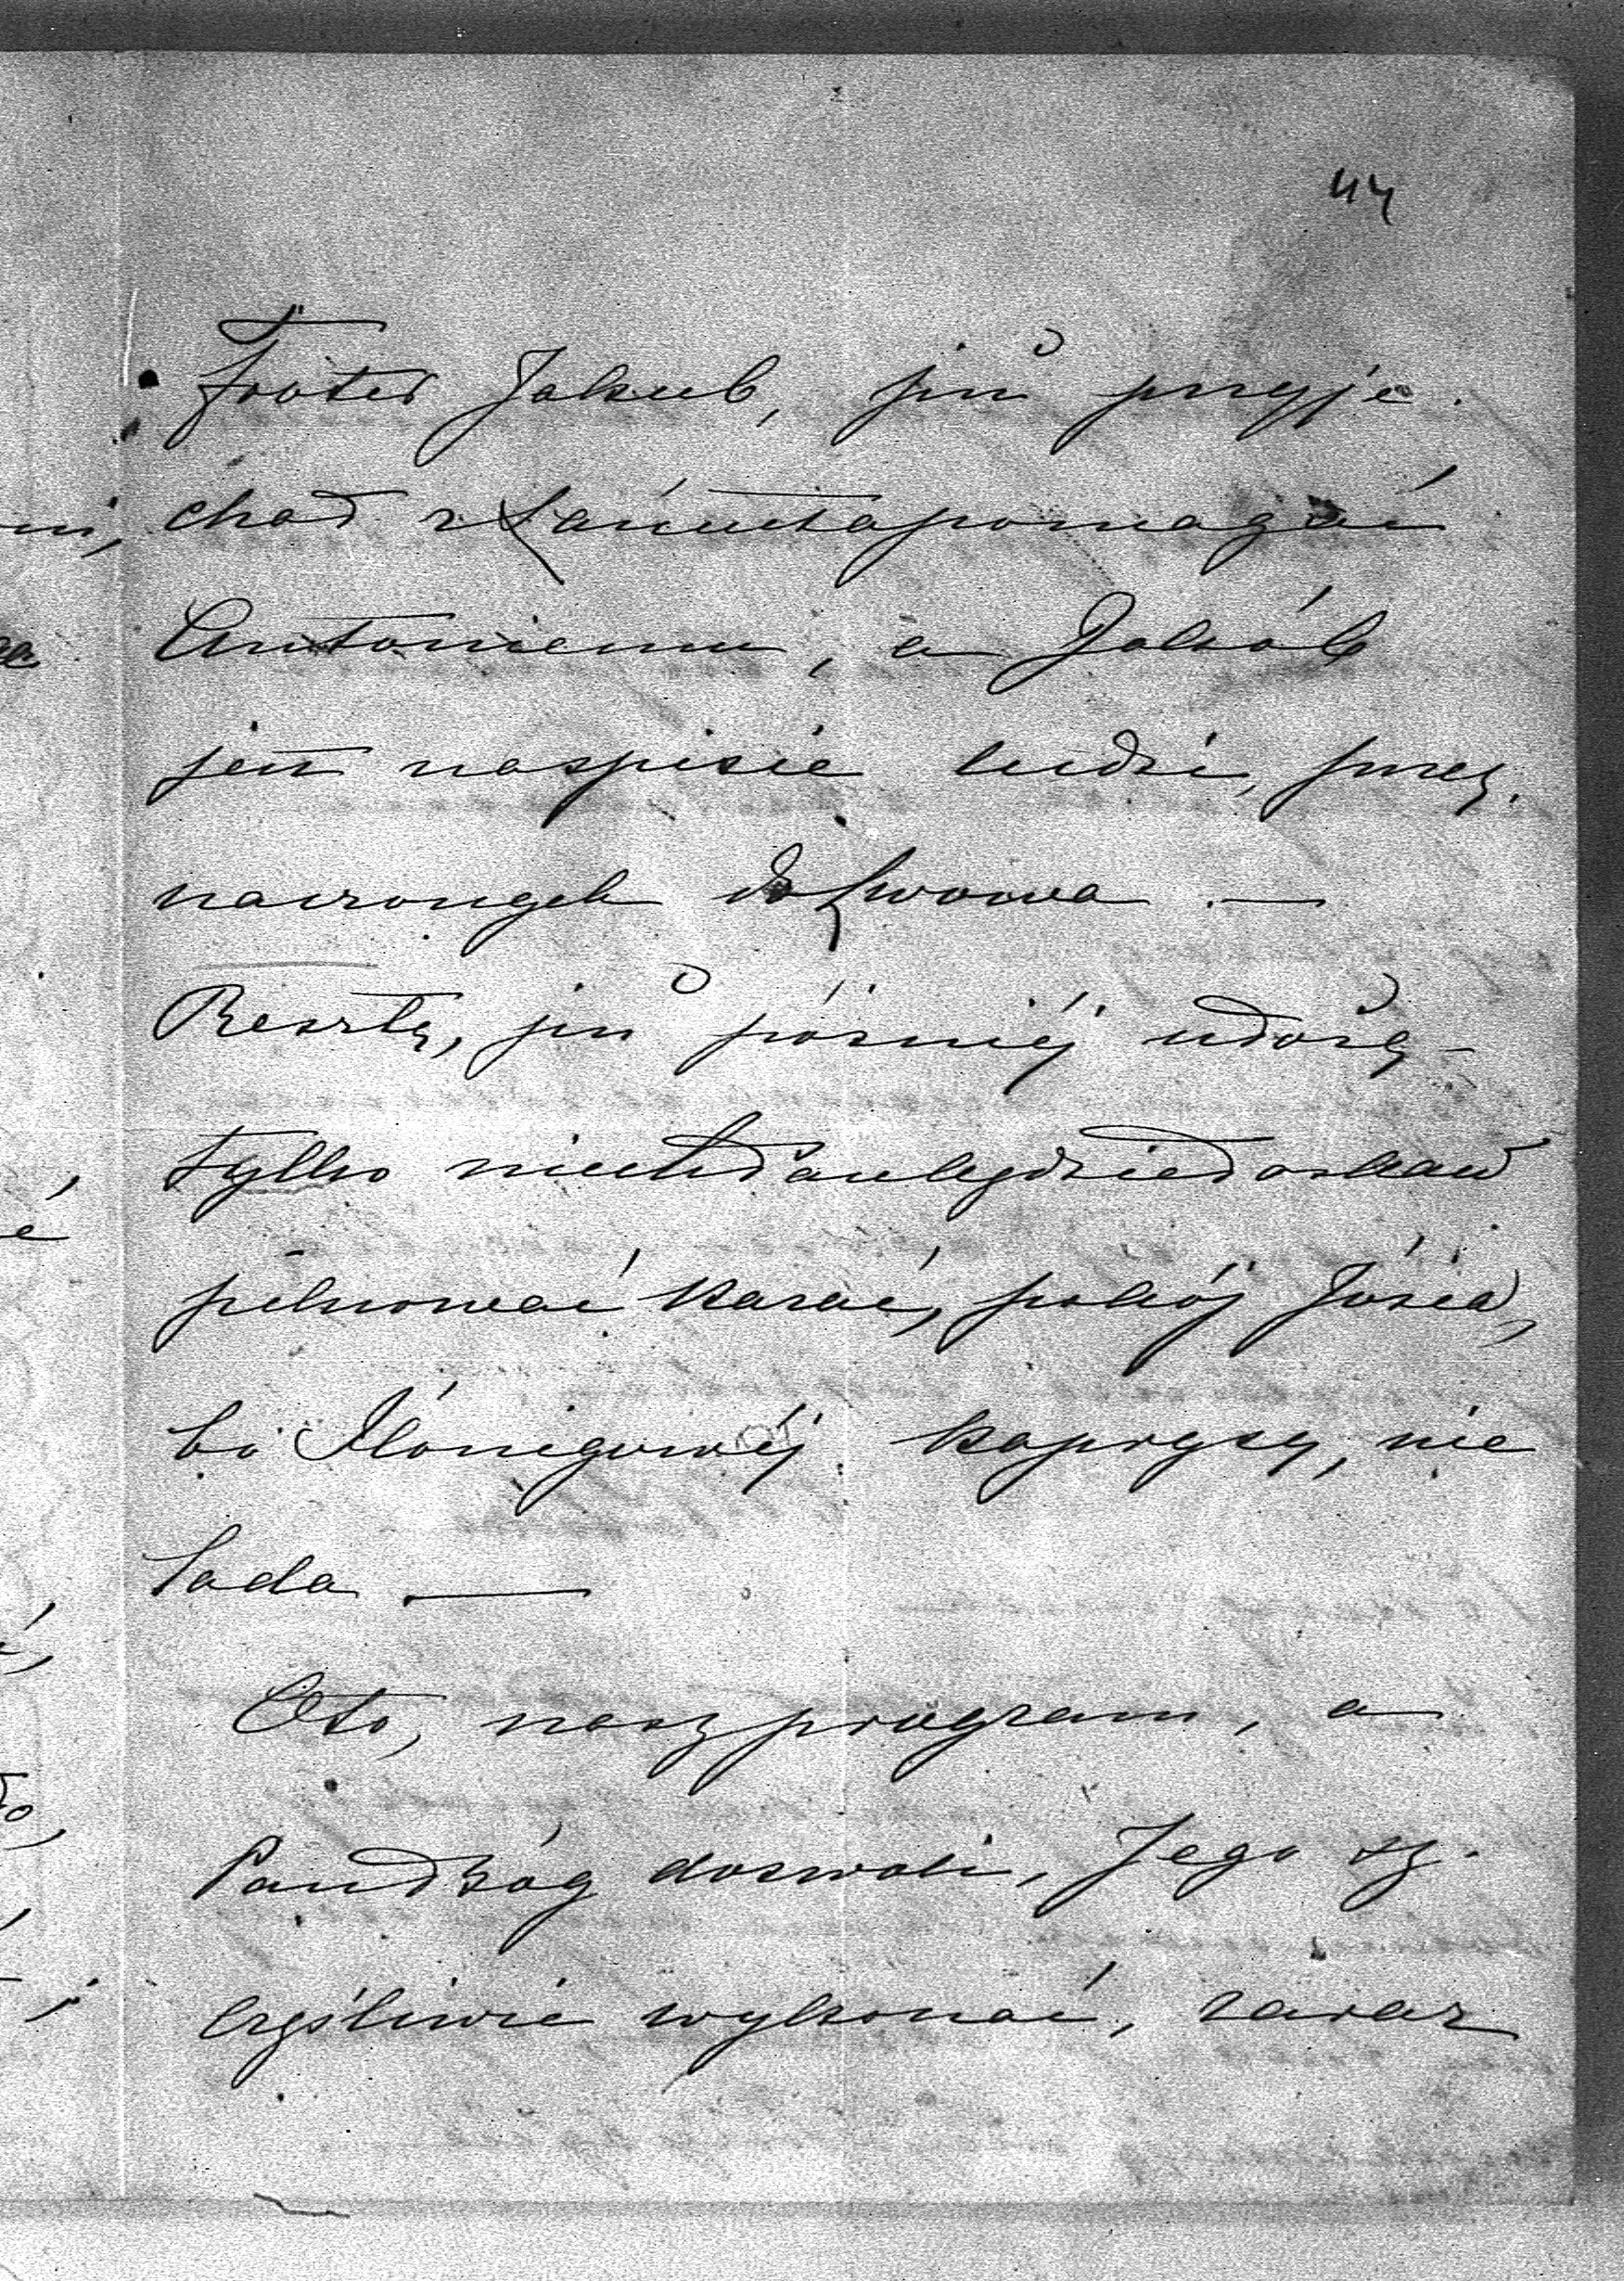 44
Froter Jakub, już przyje.
chał z Łańcuta pomagać
Antoniemu, a Jakób
jest na spisie ludzi, prze.
naczonych do Lwowa. —
Resztę, już później udożę —
tylko niech Pan będzie łaskaw
pilnować kazać, pokój Józia,
bo Königowej kaprysy, nie
lada —
Oto, nasz program, a
Pan Bóg dozwoli, Jego sz.
częśliwie wykonać, zaraz